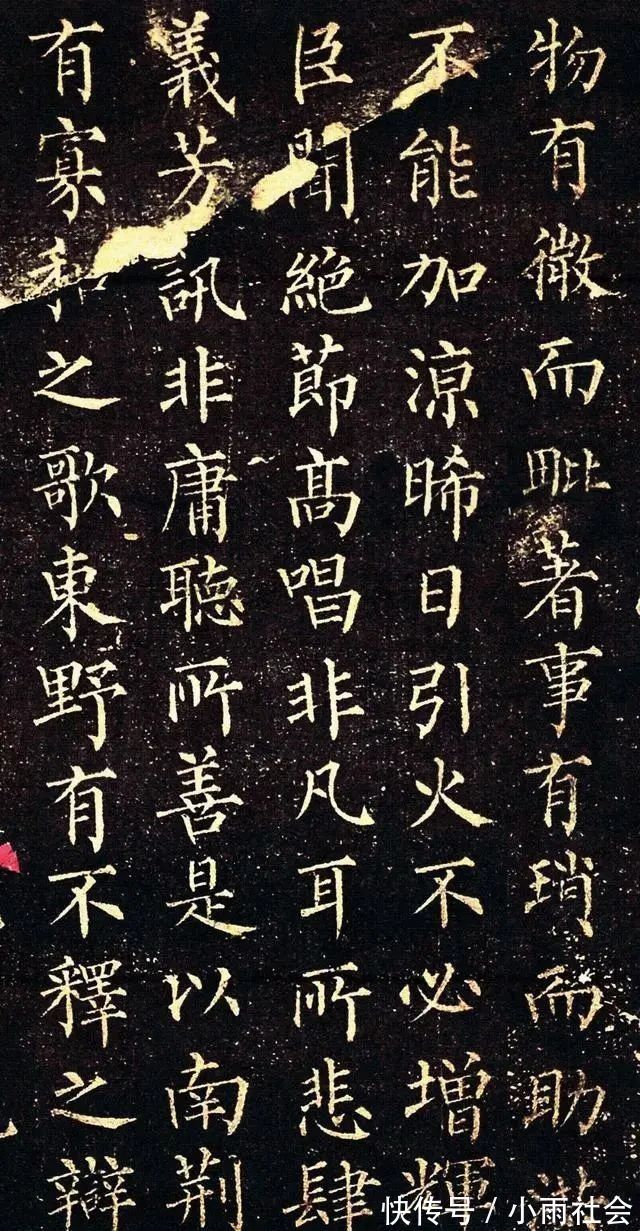 物有微而毗著事有瑣而助
不能加涼晞日引火不必增輝
臣聞絶節髙唱非凡耳所悲肆
義芳訊非庸聽所善是以南荊
有寡和之歌東野有不釋之辯
快传号 / 小雨社会